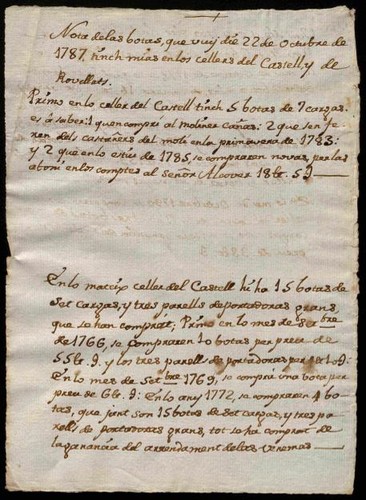 Nota de las botas, que vuy die 22 de octubre de
1787 tinch mias en los cellers del Castell, y de
Rovellats.
Primo en lo celler del Castell tinch 5 botas de 7 cargas:
es á saber: 1 quen comprí al moliner Cañas: 2 que sen fe-
ren dels castañers del molí en la primavera de 1783:
y 2 que en lo estiu de 1785, se compraren novas, per las
en los comptes al señor Alcover
En lo mateix celler del Castell hi ha 15 botas de
set cargas, y tres parells de portadoras grans,
que se han comprat; Primo en lo mes de 8bre
de 1766, se compraren 10 botas per preu de
y los tres parells de portadoras per
En lo mes de Setbre 1769, se comprá una bota per
preu de En lo any 1772, se compraren 4 bo-
tas, que junt son 15 botas de set cargas, y tres pa-
rells de portadoras grans, tot se ha comprat de
la ganancia del arrendament de las veremas